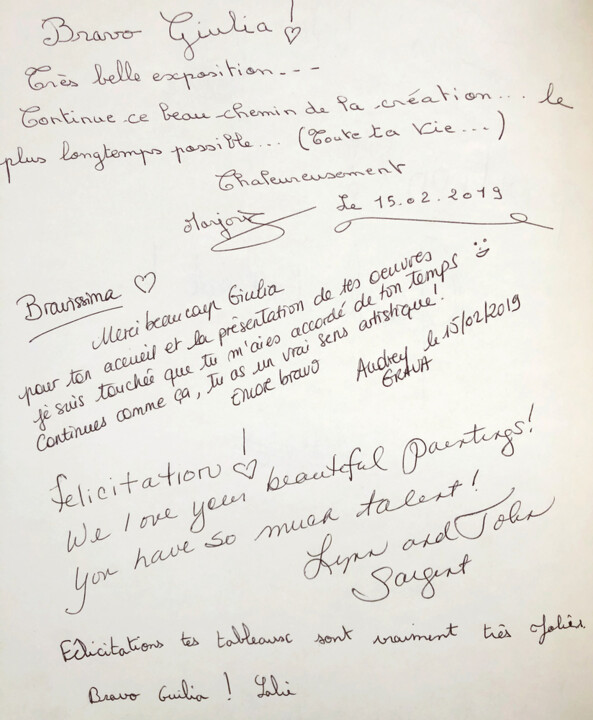 Bravo Giulia ! ♡
Très belle exposition---
Continue ce beau chemin de la création... le
plus longtemps possible... (Toute ta Vie...)
Chaleureusement
Marjorie
Le 15.02.2019
Bravissima ♡
Merci beaucoup Giulia
pour ton accueil et la présentation de tes oeuvres
je suis touchée que tu m'aies accordé de ton temps
Continues comme ça, tu as un vrai sens artistique!
Encore bravo
Audrey le 15/02/2019
GRAVA
Felicitation ! ♡
We love your beautiful paintings!
You have so much talent!
Lynn and John
Sargent
Félicitations tes tableaux sont vraiment très jolies
Bravo Guilia ! Lalie